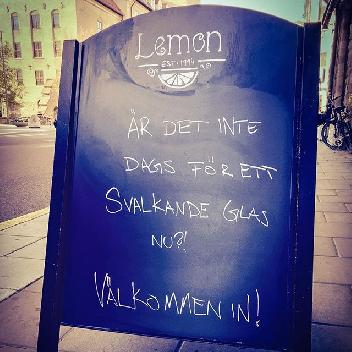 Lemon
EST. 1996
ÄR DET INTE
DAGS FÖR ETT
SVALKANDE GLAS
NU?!
VÄLKOMMEN IN!